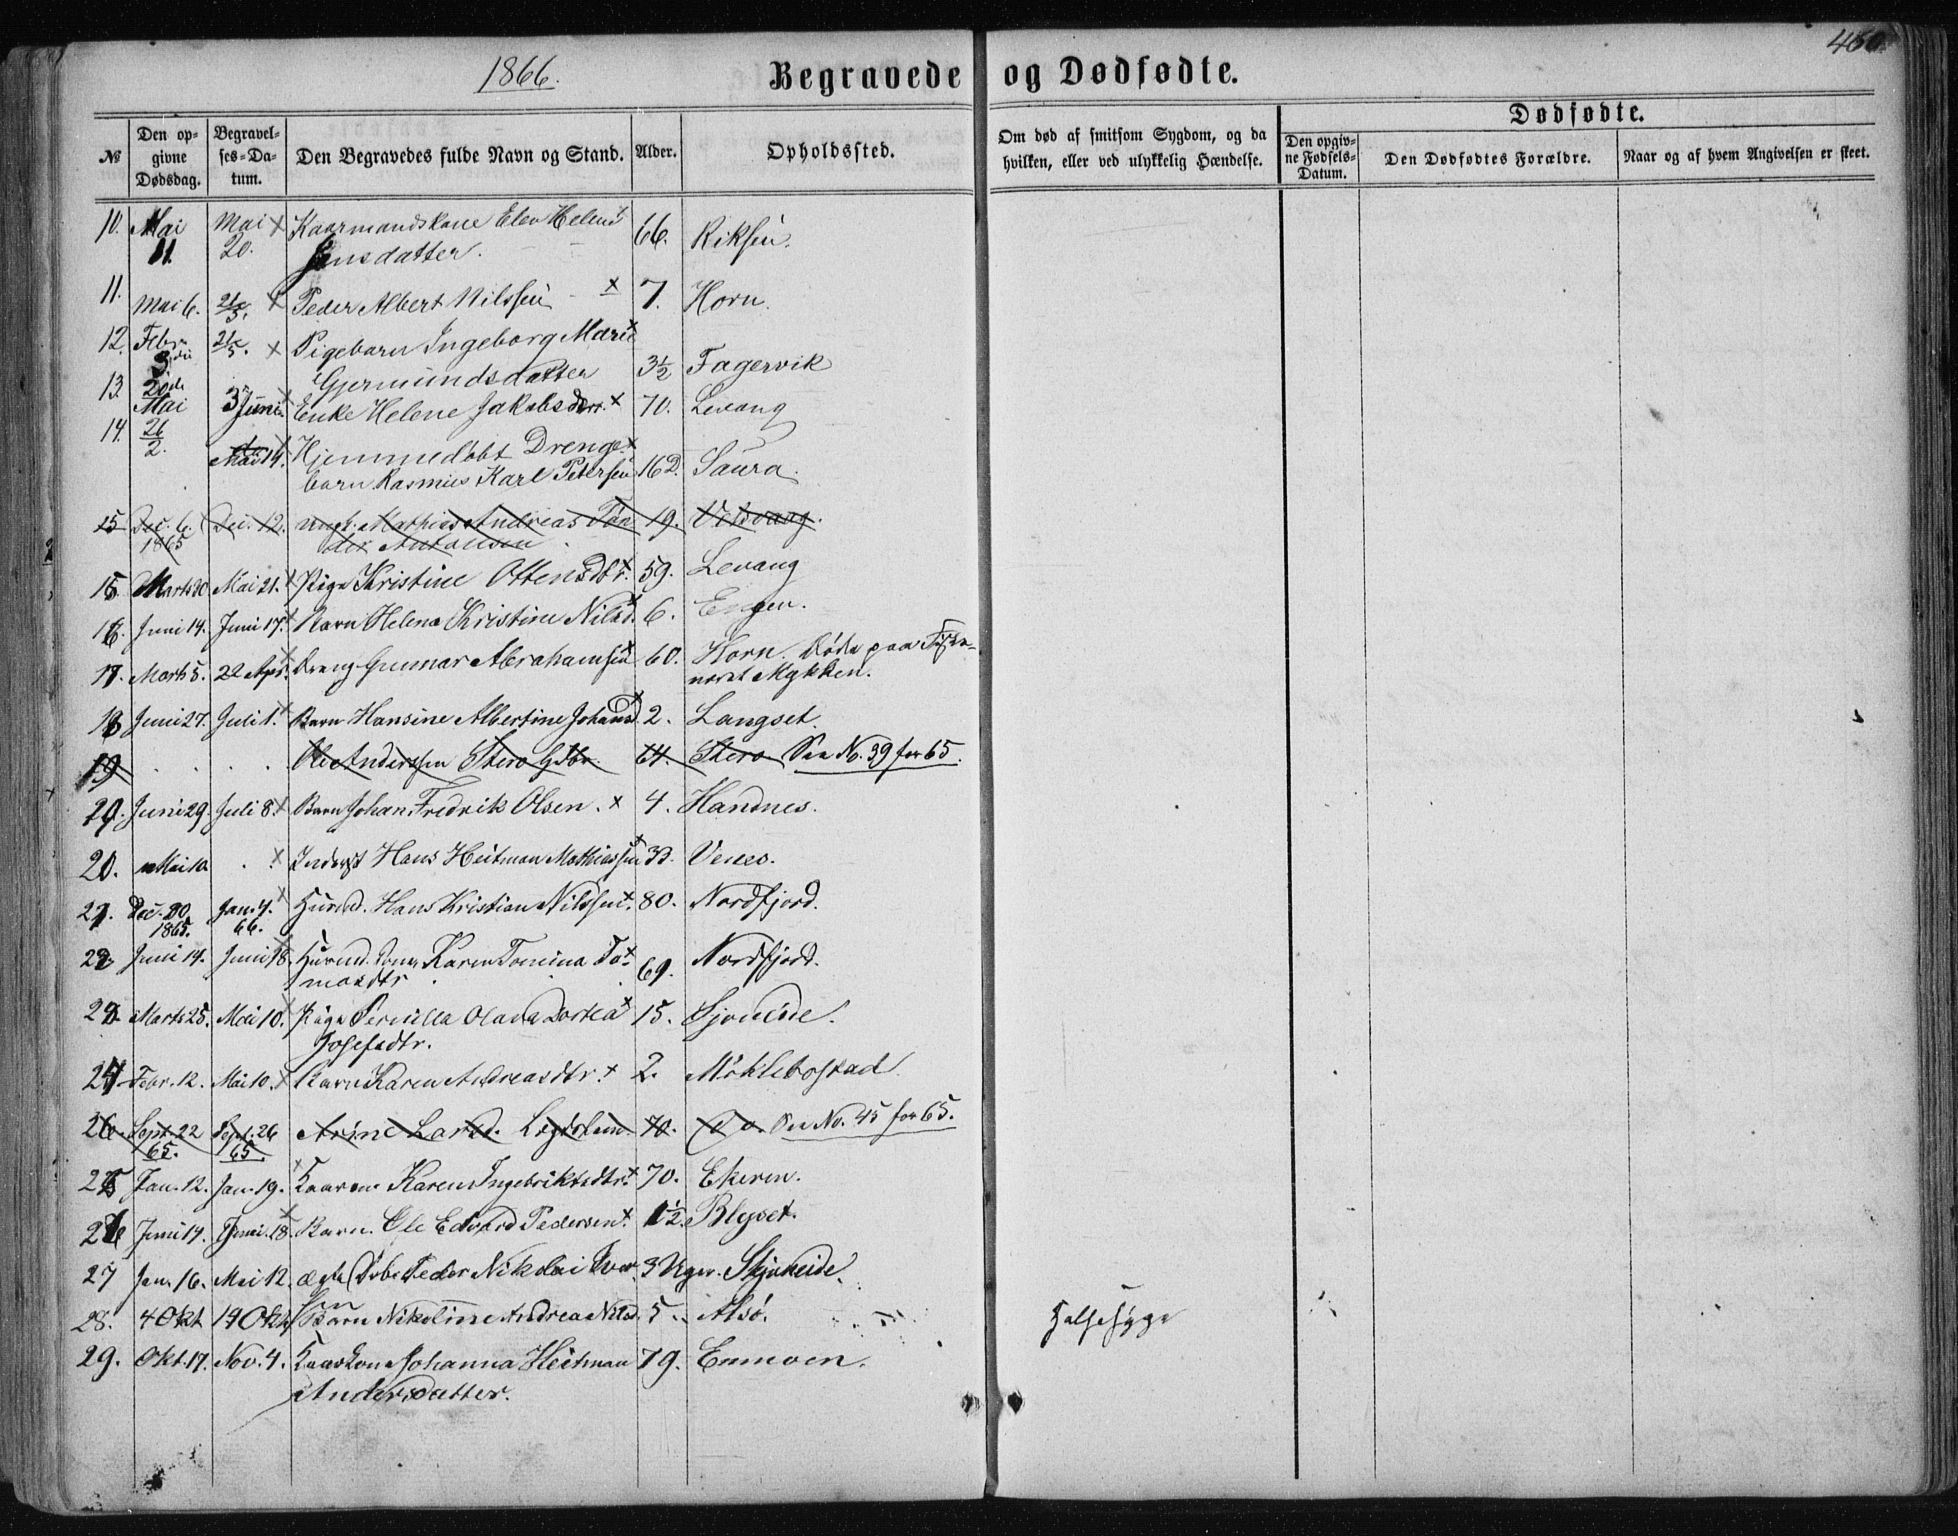 1866.
Begravede og Dødfødte.
460.
№
Den opgivne Dødsdag.
Begravelses-Datum.
Den Begravedes fulde Navn og Stand.
Alder.
Opholdssted.
Om død af smitsom Sygdom, og da hvilken, eller ved ulykkelig Hændelse.
Dødfødte.
Den opgivne Fødsels-Datum.
Den Dødfødtes Forældre.
Naar og af hvem Angivelsen er skeet.
10. Mai 11. Mai 20. Kaarmandskone Elen Helena 66. Riksen.
Jensdatter.
11. Mai 6. 21/5. Peder Albert Nilssen 7. Horn.
12. Febr. 3die 21/5. Pigebarn Ingeborg Marie
Gjermundsdatter 3½ Fagervik
13. 20de Mai 3 Juni Enke Helene Jakobsdatr. 70. Levang
14. 26/2. Mai 14. Hjemmedøbt Drenge-
barn Rasmus Karl Petersen 16 D. Saura.
15 Dec. 6. 1865 Dec. 12. ungk. Mathias Andreas 19. Velsvaag.
Antonsen
15. Marts 30 Mai 21. Pige Kristine Ottensdtr. 59. Levang
16. Juni 14. Juni 17. Barn Helena Kristine Nilsd. 6. Engen.
17. Marts 5. 22 Apr. Dreng Gunnar Abrahamsen 60. Horn. Døde paa Fiske-
været Mykken.
18. Juni 27. Juli 1. Barn Hansine Albertine Johansd. 2. Langset.
19 Ole Anderssen Stero Gdbr. 64. Stero See No. 39 for 65.
19. Juni 29. Juli 8. Barn Johan Fredrik Olsen. 4. Handnes.
20. Mai 10 Inderst Hans Heitman Mathiassen 33. Venes.
21. Dec. 30 1865. Jan. 7. 66. Husmd. Hans Kristian Nilssen. 80. Nordfjord.
22. Juni 14. Juni 18. Husmd. Karen Tomina To-
masdtr 69. Nordfjord.
23. Marts 25. Mai 10. Pige Pernilla Olava Dortea 15. Sjoneide.
Josefsdtr.
24. Febr. 12. Mai 10. Barn Karen Andreasdtr. 2. Möklebostad.
26. Sept. 22 65. Sept. 26 65. Arine Larsd. Lægdslem 70. See No. 45 for 65.
25 Jan. 12. Jan. 19. Karen Ingebriktsdtr. 70. Ekeren.
26 Juni 14. Juni 18. Barn Ole Edvard Pedersen. 1½. Blyset.
27 Jan. 16. Mai 12. ægte Peder Nikolai 3 Uger. Skjoneide.
28. 4 Okt 14 Okt. Barn Nikoline Andrea Nilsd. 5 Alsö. Halssyge
29. Okt. 17. Nov. 4. Kaarkona Johanna Heitman 79. Enmoen.
Andersdatter.